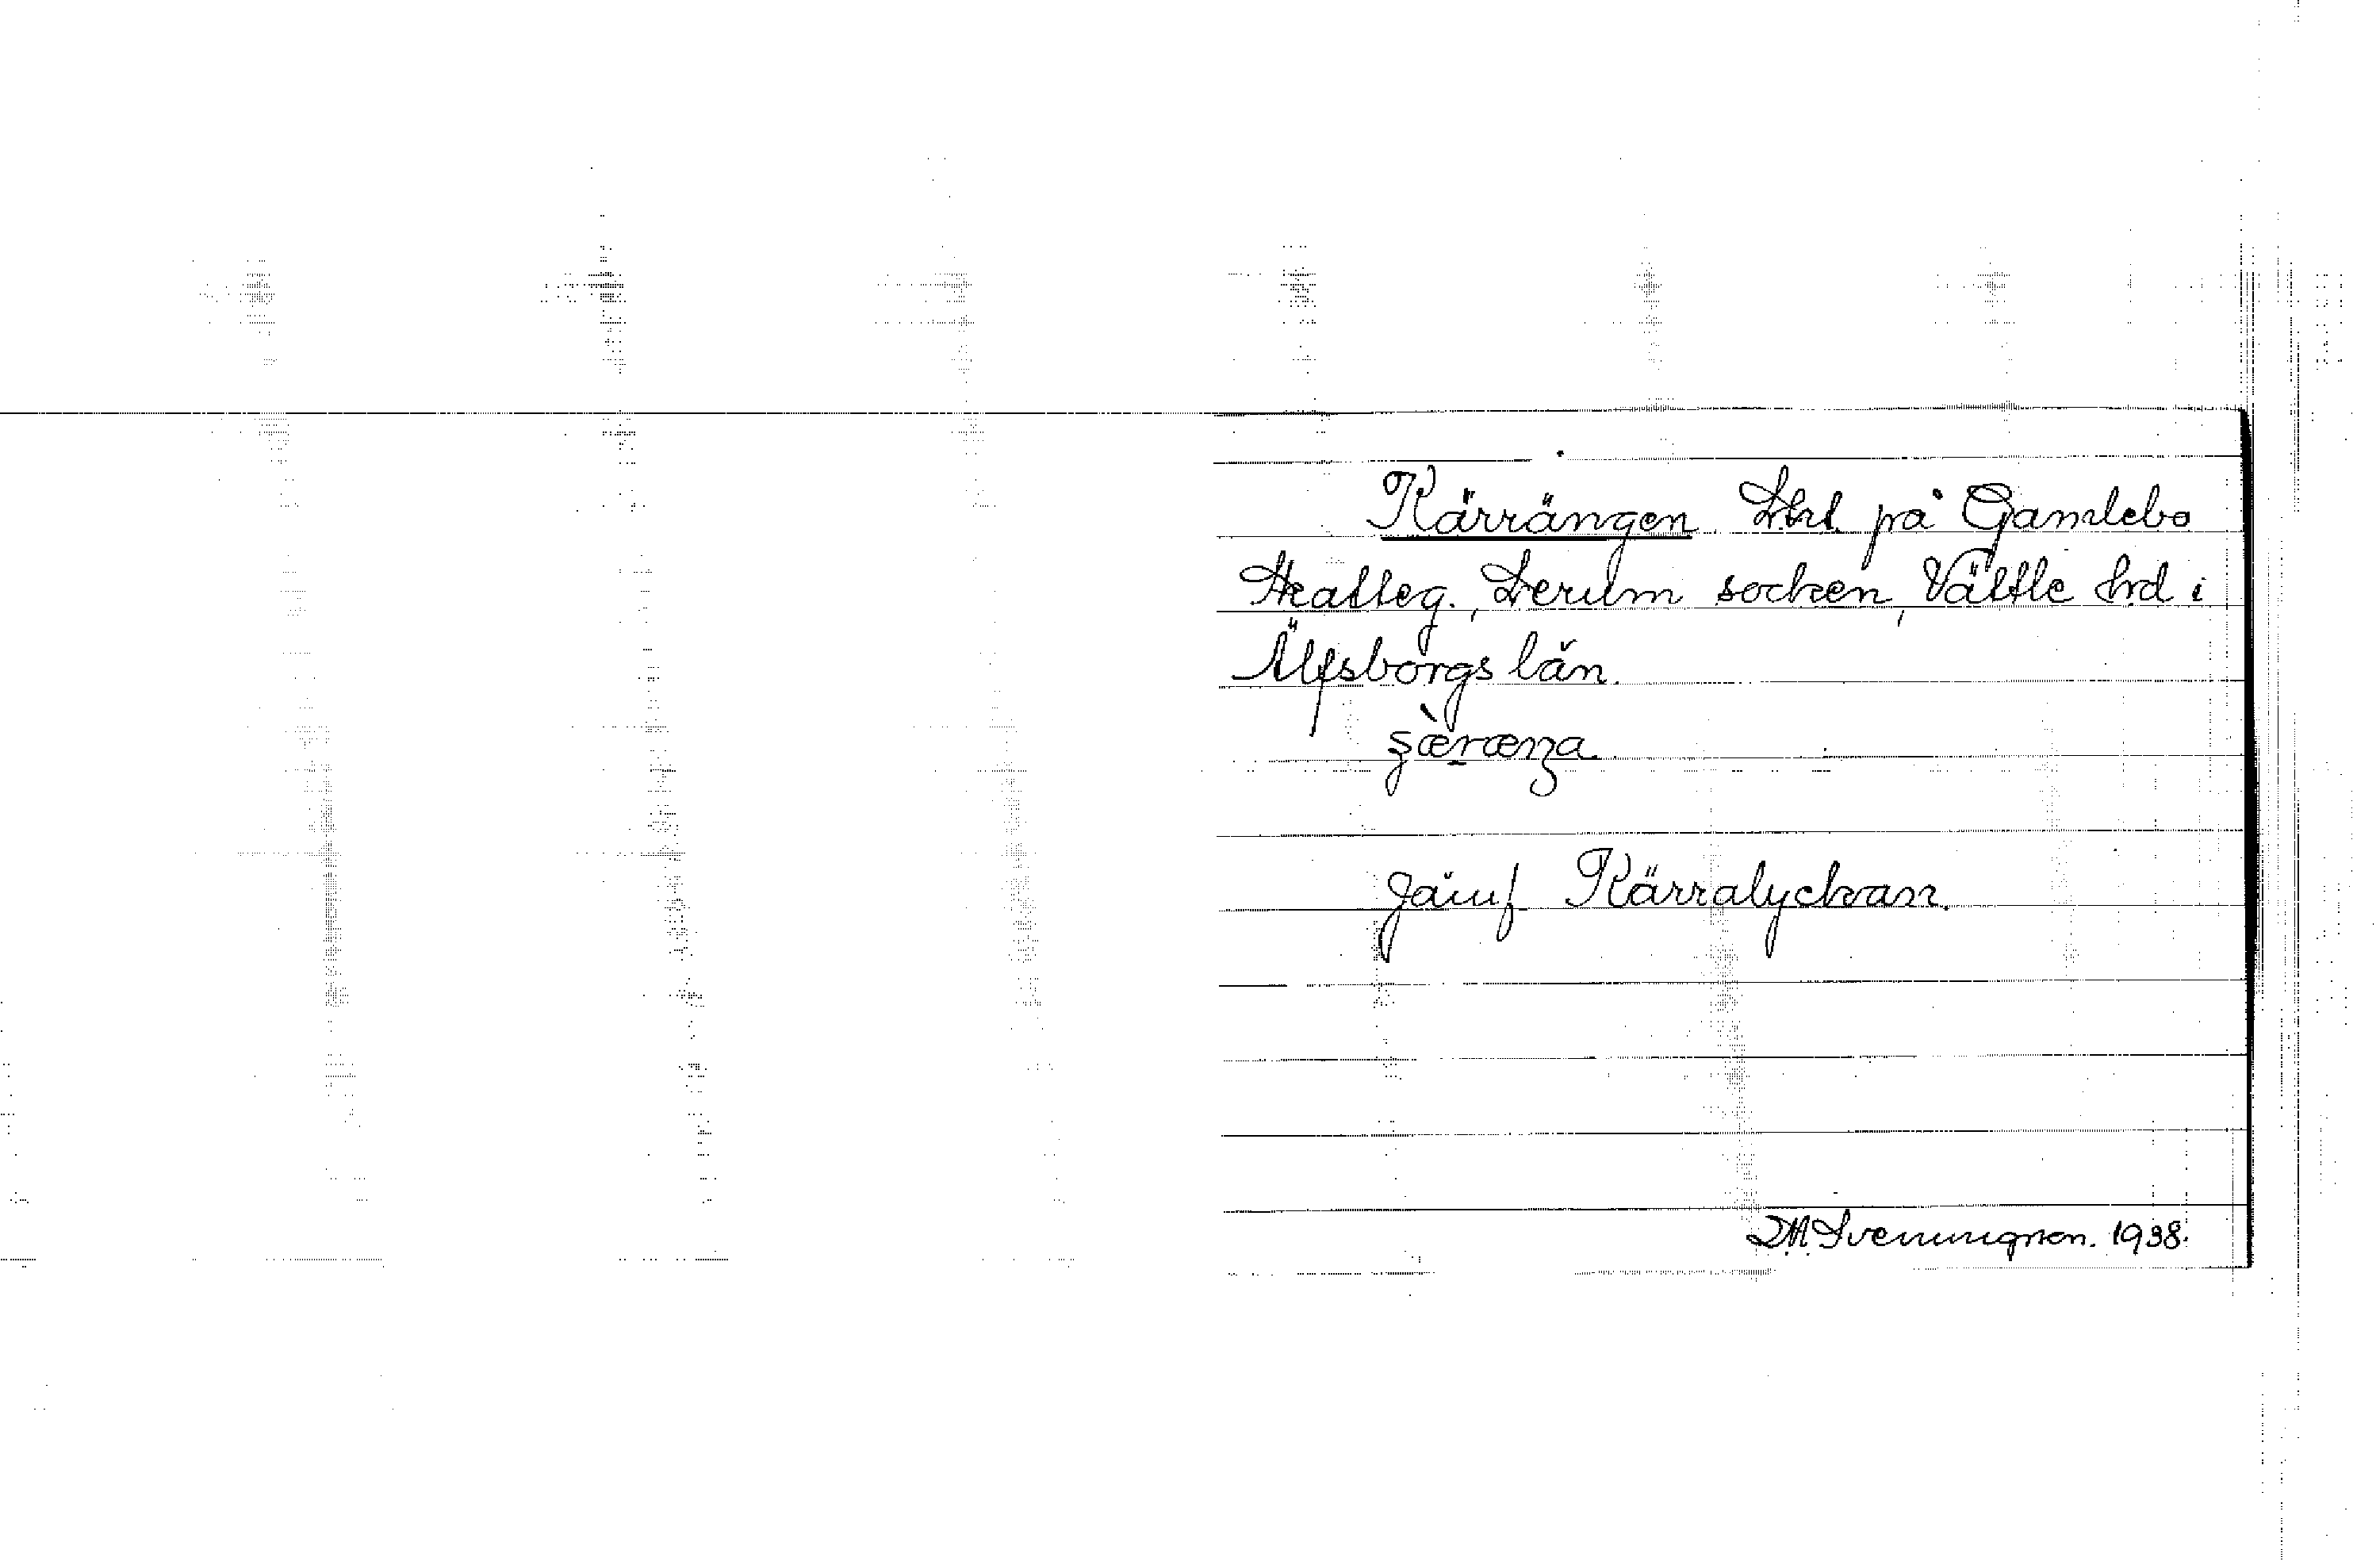 Kärrängen. Lht. på Gamlebo
Skatteg., Lerum socken, Vättle hd i
Älfsborgs län.
Jämf Kärralyckan.
D.A. Svenningson. 1938.